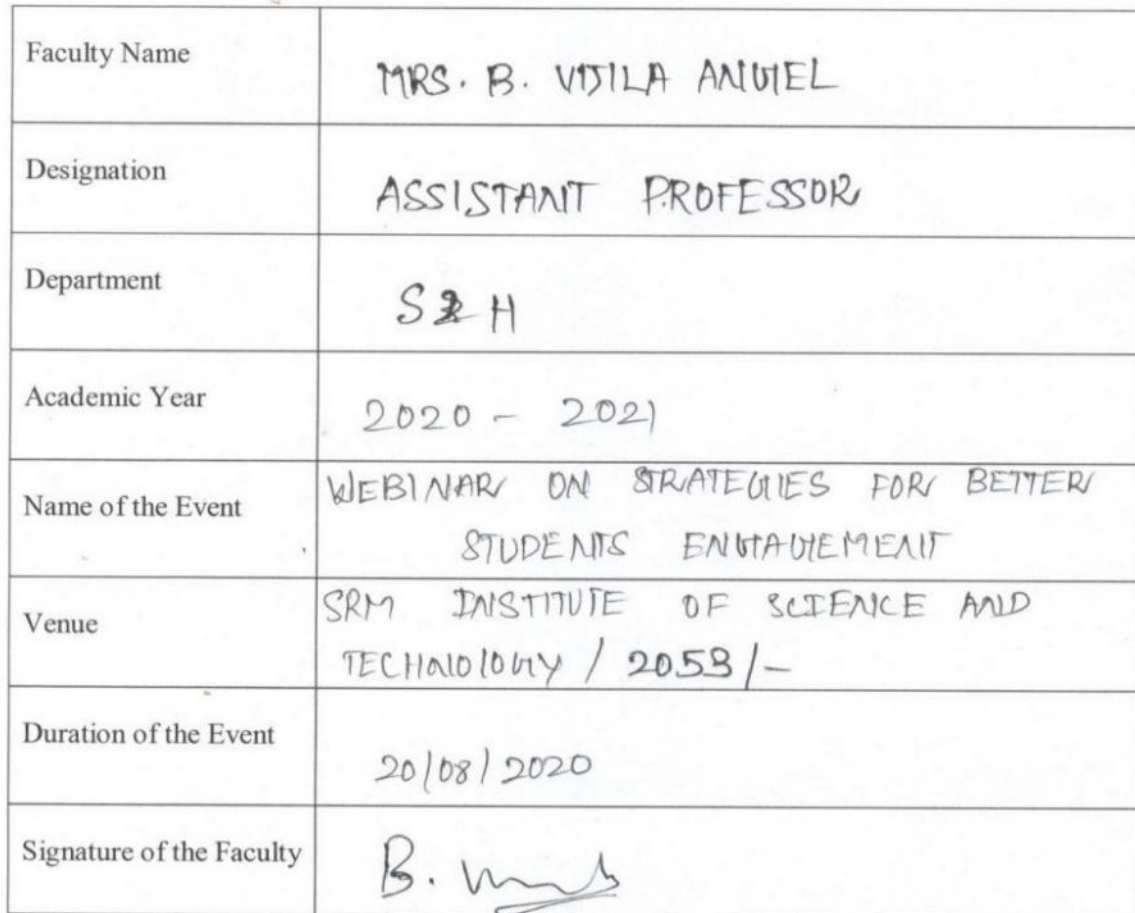 Faculty Name
MRS. B. VIJILA ANGEL
Designation
ASSISTANT PROFESSOR
Department
S & H
Academic Year
2020 - 2021
Name of the Event
WEBINAR ON STRATEGIES FOR BETTER
STUDENTS ENGAGEMENT
Venue
SRM INSTITUTE OF SCIENCE AND
TECHNOLOGY / 2053/-
Duration of the Event
20/08/2020
Signature of the Faculty
B.